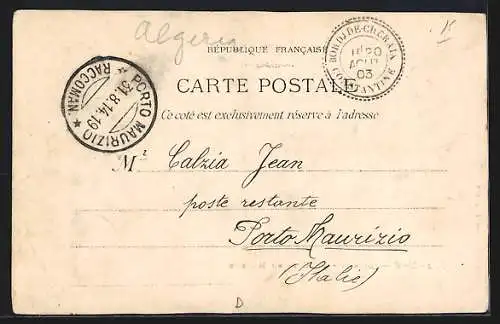 Algeria
15
RÉPUBLIQUE FRANÇAISE
BORDJ-DE-CHEGRAIA
20
AOUT
03
CONSTANTINE
CARTE POSTALE
PORTO MAURIZIO
31.8.14.19
RACCOMAN.
Ce coté est exclusivement réservé à l'adresse
M.r Calzia Jean
poste restante
Porto Maurizio
(Italie)
D